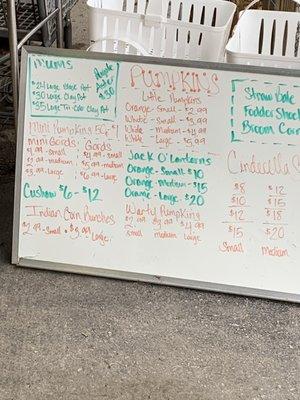 mums
$24 Large Base Pot
$30 Large Clay Pot
$35 Large Tri-Color Clay Pot
Purple
Aster
$30
Mini Pumpkins
Mini Gords
Gords
$5.99 small
$5.99 medium
$6.99 Large
Cushaw $6 - $12
Indian Corn Bunches
$2.99 - Small
$5.99 Large
PUMPKINS
Little Pumpkins
Orange-Small-$2.99
White-Small
White-Medium
White-Large
Jack O' Lanterns
Orange-Small-$10
Orange-Medium-$15
Orange-Large-$20
Warty Pumpkins
small medium Large
Straw Bale
Fodder Shock
Broom Corn
Cinderella
$8 $12
$10 $15
$12 $18
$15 $20
Small Medium